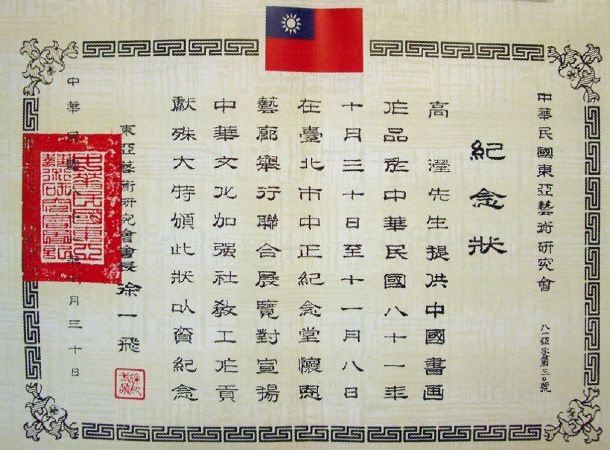 中華民國東亞藝術研究會
八一徑字第三〇號
紀念狀
高 瀅先生提供中國書画
作品於中華民國八十一年
十月三十日至十一月八日
在臺北市中正紀念堂懷恩
藝廊舉行聯合展覽對宣揚
中華文化加强社教工作貢
獻殊大特頒此狀以資紀念
東亞藝術研究會會長 徐一飛
中華民 月三十日